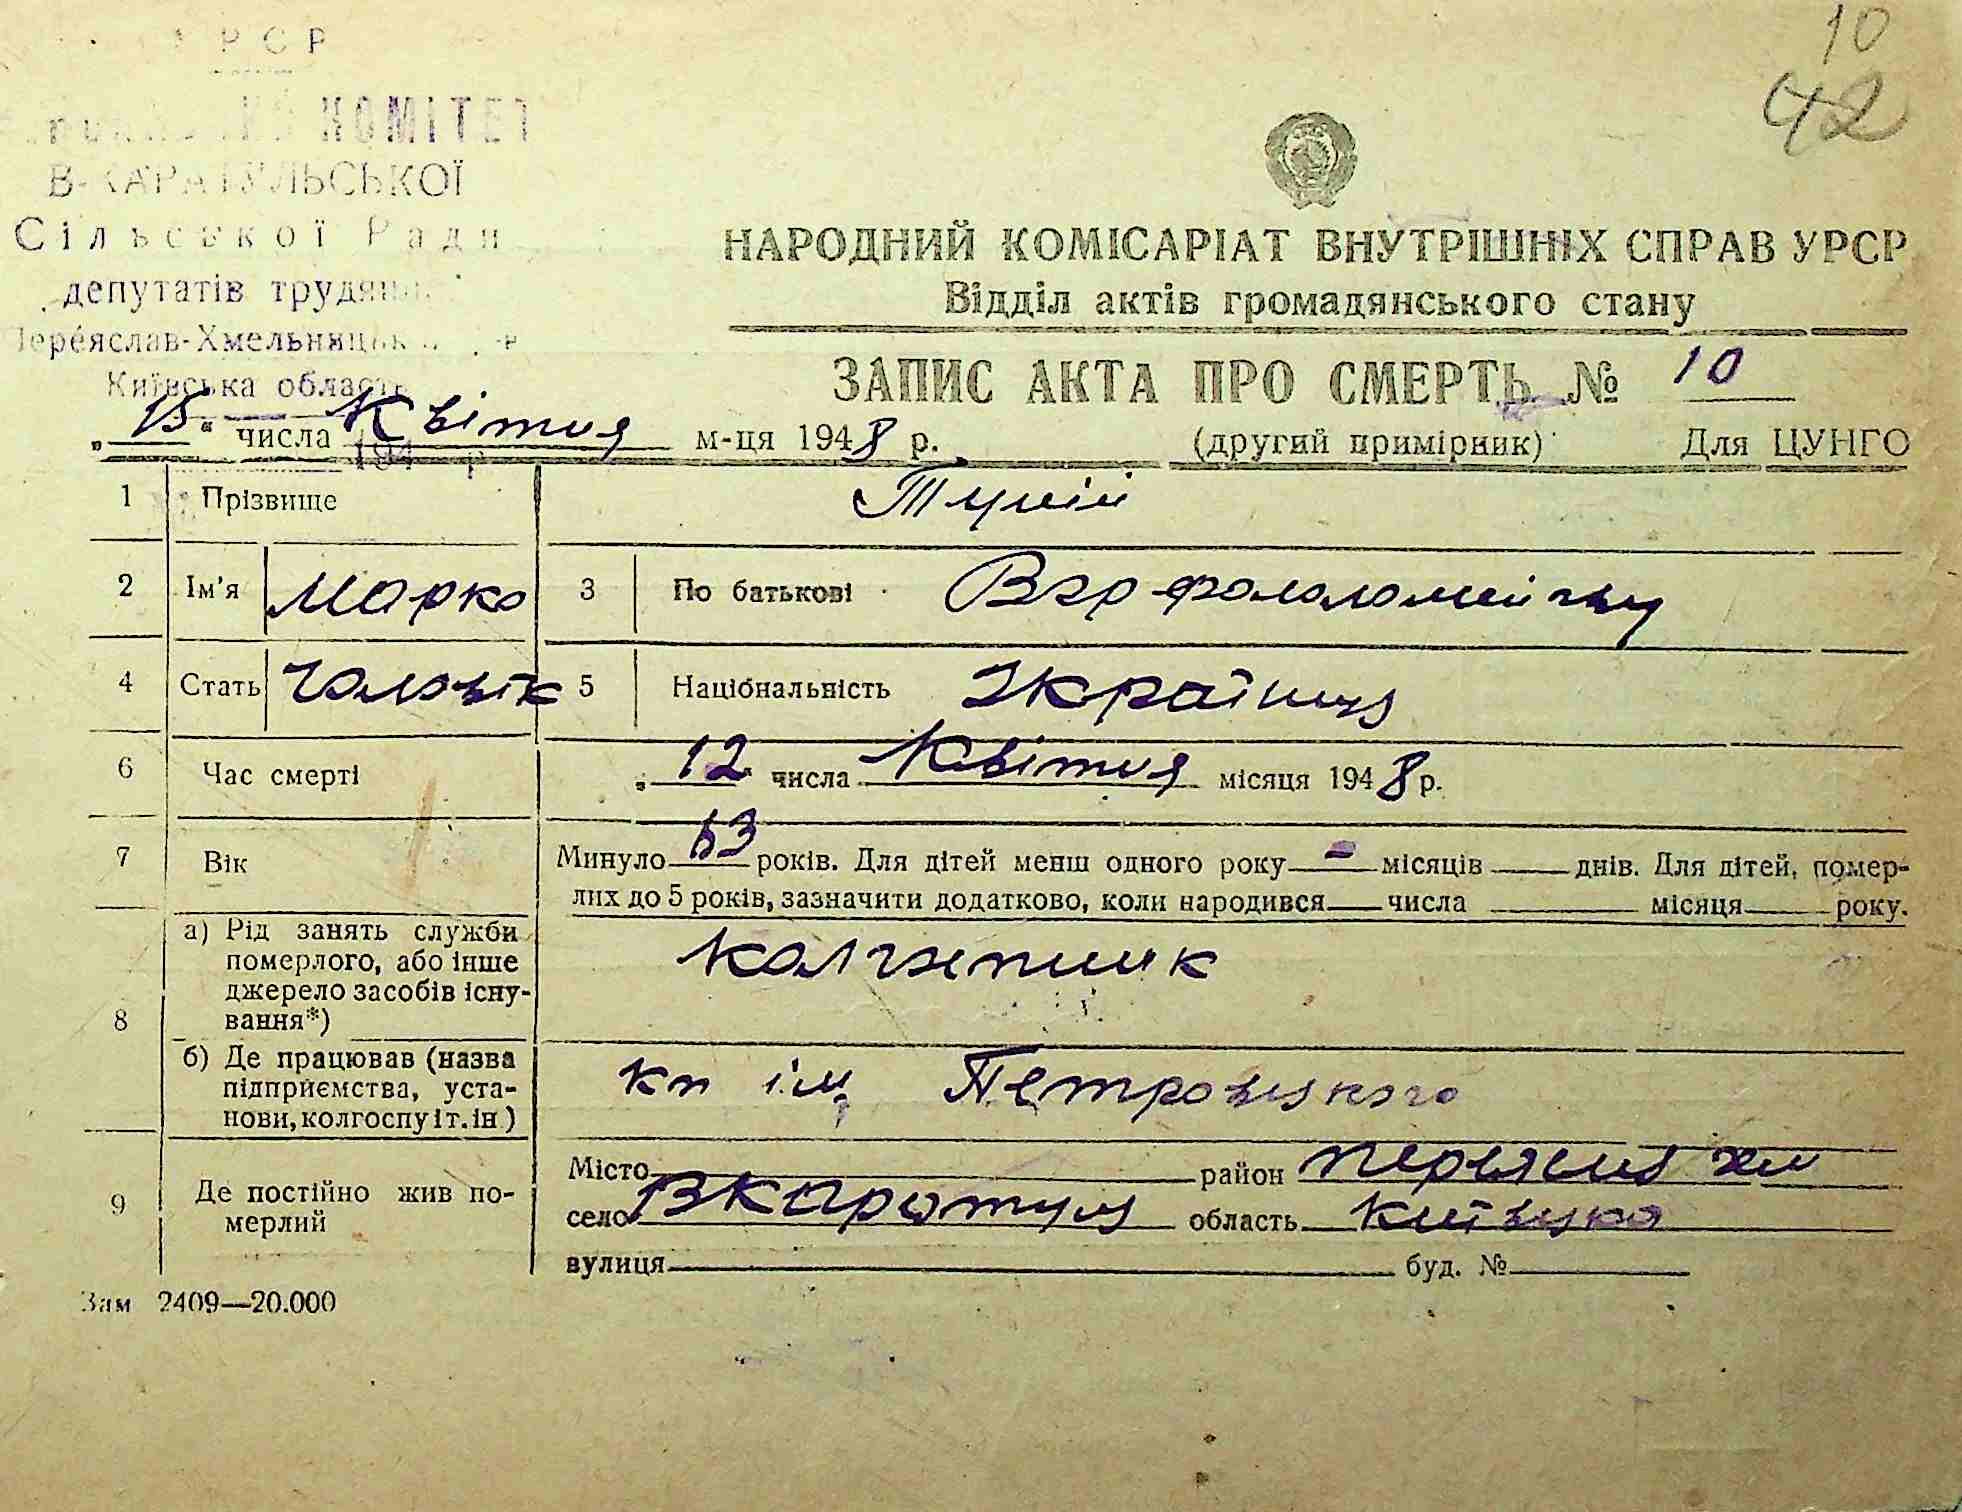 РСР
КОМІТЕТ
В-КАРАТУЛЬСЬКОЇ
Сільської Ради
депутатів трудящих
Переяслав-Хмельницьк
Київська область
194 р
10
42
НАРОДНИЙ КОМІСАРІАТ ВНУТРІШНІХ СПРАВ УРСР
Відділ актів громадянського стану
ЗАПИС АКТА ПРО СМЕРТЬ № 10
„15“ числа Квітня м-ця 1948 р. (другий примірник) Для ЦУНГО
1 Прізвище
2 Ім'я Марко 3 По батькові
4 Стать Чоловік 5 Національність Україна
6 Час смерті „12“ числа Квітня місяця 1948 р.
7 Вік Минуло 63 років. Для дітей менш одного року - місяців днів. Для дітей, помер-
лих до 5 років, зазначити додатково, коли народився числа місяця року.
8 а) Рід занять служби
померлого, або інше
джерело засобів існу-
вання*)
Колгкпник
б) Де працював (назва
підприємства, уста-
нови, колгоспу і т. ін.)
кп ім. Петровського
9 Де постійно жив по-
мерлий
Місто район Переяслав хм
село В Каратул область Київська
вулиця буд. №
Зам 2409—20.000